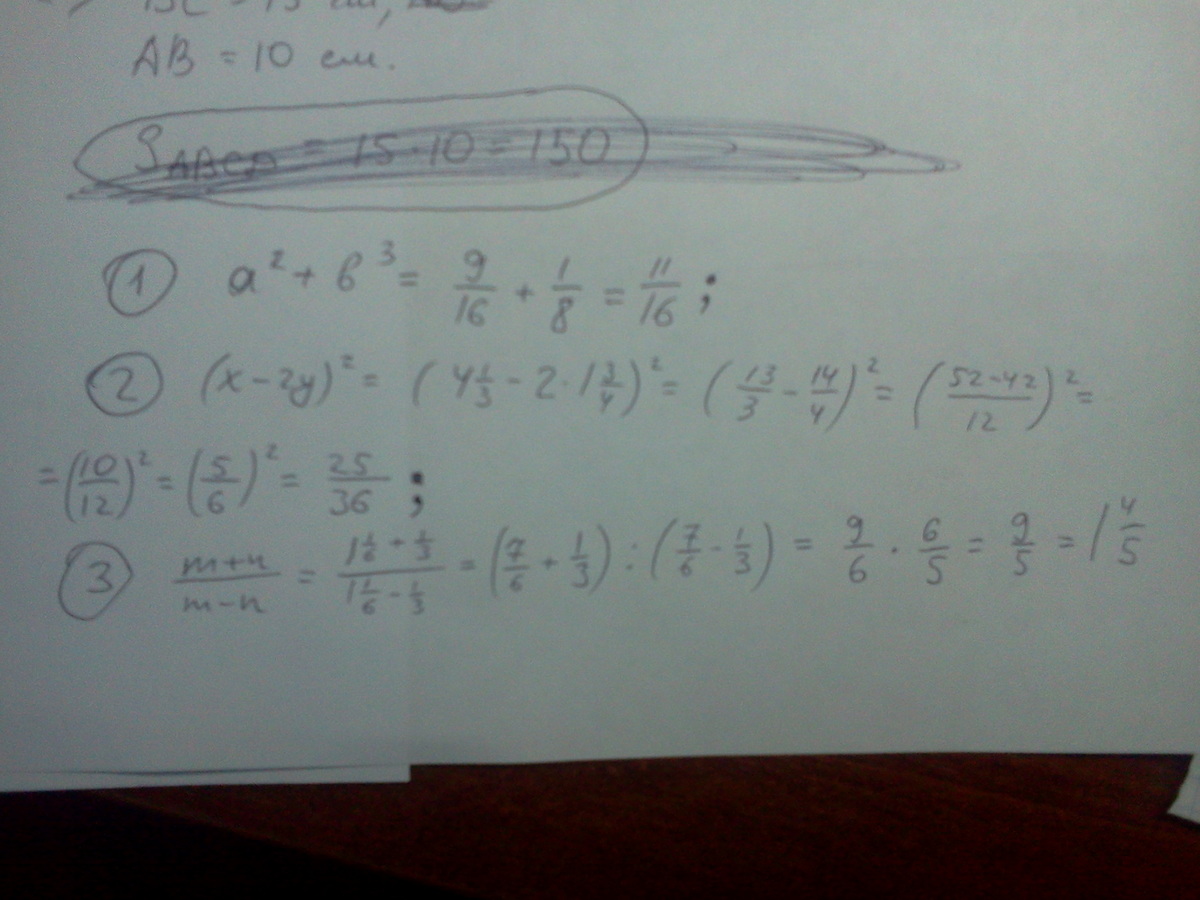 BC = 15 см,
AB = 10 см.
S_ABCD = 15·10 = 150
① a² + b³ = 9/16 + 1/8 = 11/16 ;
② (x – 2y)² = (4 1/3 – 2·1 3/4)² = (13/3 – 14/4)² = (52–42/12)² =
= (10/12)² = (5/6)² = 25/36 ;
③ m+n/m–n = 1 1/6 + 1/3 / 1 1/6 – 1/3 = (7/6 + 1/3) : (7/6 – 1/3) = 9/6 · 6/5 = 9/5 = 1 4/5